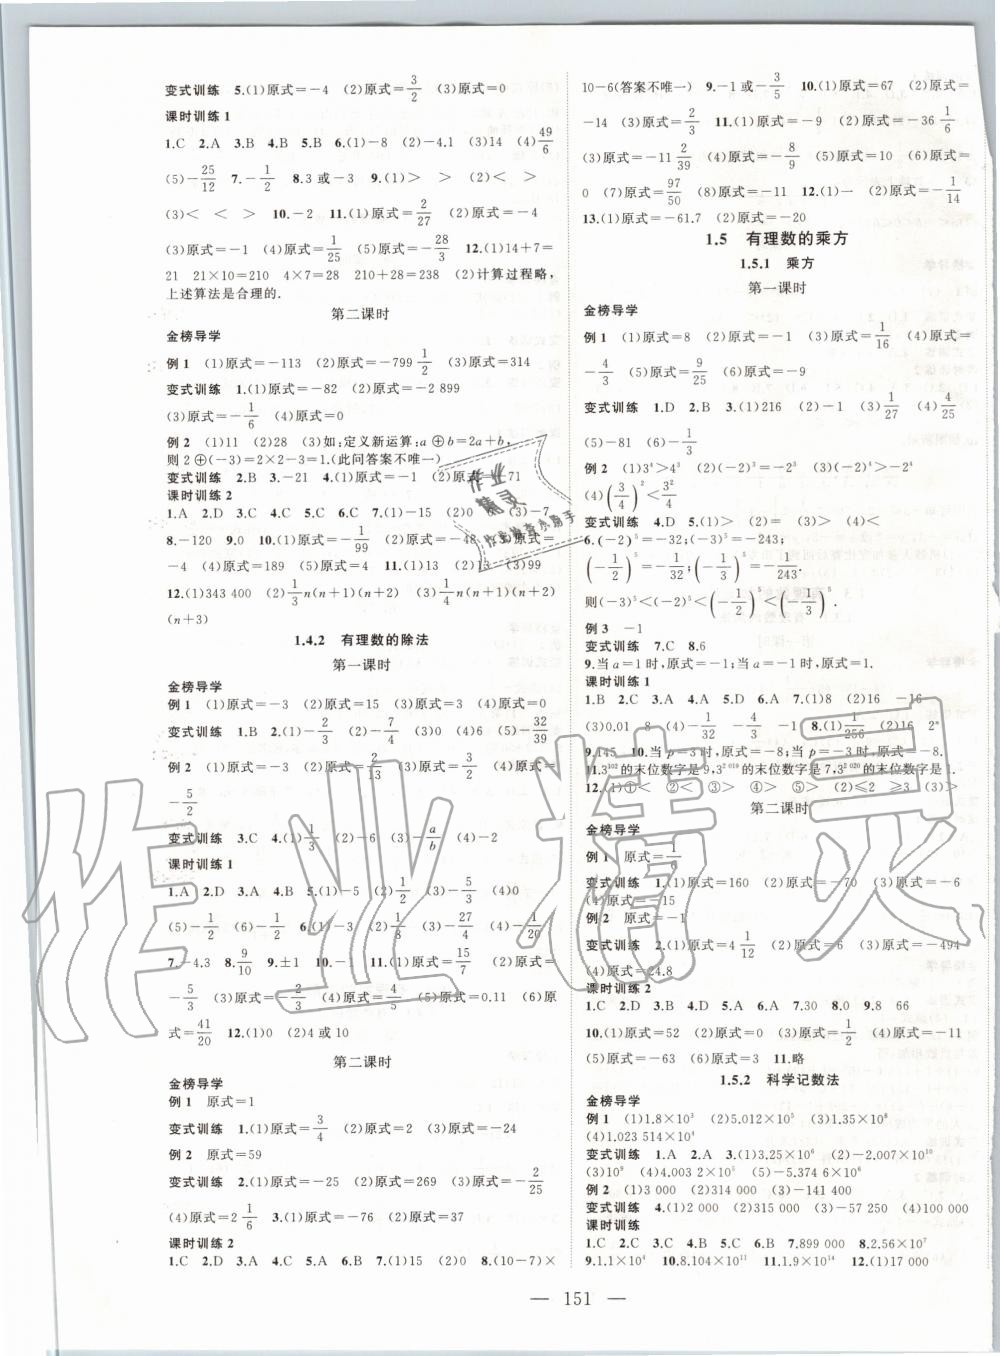 变式训练 5.(1)原式=-4 (2)原式=3/2 (3)原式=0
课时训练1
1.C 2.A 3.B 4.B 5.B 6.(1)-8 (2)-4.1 (3)14 (4)49/6
(5)-25/12 7.-1/2 8.3或-3 9.(1)> > (2)< >
(3)< < > 10.-2 11.(1)原式=2/27 (2)原式=-4
(3)原式=-1 (4)原式=1/25 (5)原式=-28/3 12.(1)14+7=
21 21×10=210 4×7=28 210+28=238 (2)计算过程略,
上述算法是合理的.
第二课时
金榜导学
例1 (1)原式=-113 (2)原式=-799 1/2 (3)原式=314
变式训练 1.(1)原式=-82 (2)原式=-2 899
(3)原式=-1/6 (4)原式=0
例2 (1)11 (2)28 (3)如:定义新运算:a⊕b=2a+b,
则2⊕(-3)=2×2-3=1.(此问答案不唯一)
变式训练 2.B 3.-21 4.(1)原式=-1 (2)原式=-71
课时训练2
1.A 2.D 3.C 4.C 5.C 6.C 7.(1)-15 (2)0 (3)-7
8.-120 9.0 10.(1)原式=-1/99 (2)原式=-48 (3)原式=
-4 (4)原式=189 (5)原式=-34 11.(1)13 (2)13 (3)99
12.(1)343 400 (2)1/3n(n+1)(n+2) (3)1/4n(n+1)(n+2)
(n+3)
1.4.2 有理数的除法
第一课时
金榜导学
例1 (1)原式=-3 (2)原式=15 (3)原式=3 (4)原式=0
变式训练 1.B 2.(1)-2/3 (2)-7/4 (3)0 (4)6 (5)-32/39
例2 (1)原式=-3 (2)原式=2/13 (3)原式=3/2 (4)原式=
-5/2
变式训练 3.C 4.(1)1/3 (2)-6 (3)-a/b (4)-2
课时训练1
1.A 2.D 3.A 4.B 5.(1)-5 (2)1/2 (3)-5/3 (4)0
(5)-1/2 (6)-1/2 6.(1)-3 (2)1/8 (3)-27/4 (4)-1/20
7.-4,3 8.9/10 9.±1 10.-1 11.(1)原式=15/7 (2)原式=
-5/3 (3)原式=-2/3 (4)原式=4/5 (5)原式=0.11 (6)原
式=41/20 12.(1)0 (2)4或10
第二课时
金榜导学
例1 原式=1
变式训练 1.(1)原式=3/4 (2)原式=2 (3)原式=-24
例2 原式=59
变式训练 2.(1)原式=-25 (2)原式=269 (3)原式=-2/25
(4)原式=2 1/6 3.(1)原式=-76 (2)原式=37
课时训练2
1.C 2.D 3.A 4.C 5.A 6.B 7.(1)15 (2)0 8.(10-7)×
10-6(答案不唯一) 9.-1或-3/5 10.(1)原式=67 (2)原式=
-14 (3)原式=2/3 11.(1)原式=-9 (2)原式=-36 1/6
(3)原式=-11 2/39 (4)原式=-8/9 (5)原式=10 (6)原式=
0 (7)原式=97/50 (8)原式=-11 12.(1)一 (2)原式=-1/14
13.(1)原式=-61.7 (2)原式=-20
1.5 有理数的乘方
1.5.1 乘方
第一课时
金榜导学
例1 (1)原式=8 (2)原式=-1 (3)原式=1/16 (4)原式=
-4/3 (5)原式=9/25 (6)原式=-9
变式训练 1.D 2.B 3.(1)216 (2)-1 (3)1/27 (4)4/25
(5)-81 (6)-1/3
例2 (1)3⁴>4³ (2)-1/3>-1/2 (3)(-4)²>-2⁴
(4)(3/4)²<3²/4
变式训练 4.D 5.(1)> (2)= (3)> (4)<
6.(-2)⁵=-32;(-3)⁵=-243;
(-1/2)⁵=-1/32;(-1/3)⁵=-1/243.
则(-3)⁵<(-2)⁵<(-1/2)⁵<(-1/3)⁵.
例3 -1
变式训练 7.C 8.6
9.当a=1时,原式=-1;当a=-1时,原式=1.
课时训练1
1.B 2.C 3.A 4.A 5.D 6.A 7.(1)8 (2)16 -16
(3)0.01 8 (4)-1/32 -4/3 -1 8.(1)1/256 (2)16 2ⁿ
9.145 10.当p=3时,原式=-8;当p=-3时,原式=-8.
11.3¹⁰²的末位数字是9,3²⁰¹⁹的末位数字是7,3²⁰²⁰的末位数字是1.
12.(1)①< ②< ③> ④> ⑤> (2)≤2 ≥3 (3)>
第二课时
金榜导学
例1 原式=1/6
变式训练 1.(1)原式=160 (2)原式=-70 (3)原式=-6
(4)原式=-15
例2 原式=-1
变式训练 2.(1)原式=4 1/12 (2)原式=6 (3)原式=-494
(4)原式=24.8
课时训练2
1.C 2.D 3.D 4.B 5.A 6.A 7.30 8.0 9.8 66
10.(1)原式=52 (2)原式=0 (3)原式=1/2 (4)原式=-11
(5)原式=-63 (6)原式=3 11.略
1.5.2 科学记数法
金榜导学
例1 (1)1.8×10³ (2)5.012×10⁵ (3)1.35×10⁸
(4)1.023 514×10⁴
变式训练 1.A 2.A 3.(1)3.25×10⁶ (2)-2.007×10¹⁰
(3)10⁹ (4)4.003 2×10⁴ (5)-5.374 6×10⁶
例2 (1)3 000 (2)314 000 (3)-14 150
变式训练 4.(1)2 000 (2)315 000 (3)-57 250 (4)100 000
课时训练
1.C 2.C 3.C 4.B 5.C 6.D 7.899 000 8.2.56×10⁷
9.1.1×10⁴ 10.8.104×10¹³ 11.1.9×10¹⁴ 12.(1)17 000
— 151 —
作业精灵
作业精灵
作业检查小助手